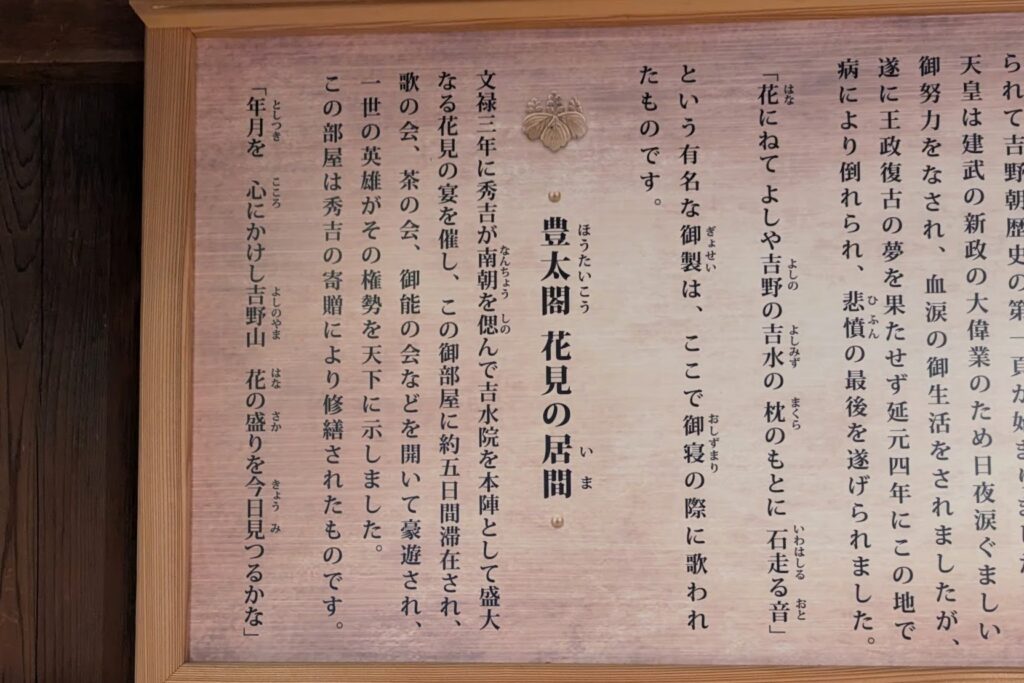 られて吉野朝歴史の第一頁が始まりました
天皇は建武の新政の大偉業のため日夜涙ぐましい
御努力をなされ、血涙の御生活をされましたが、
遂に王政復古の夢を果たせず延元四年にこの地で
病により倒れられ、悲憤の最後を遂げられました。
「花にねて よしや吉野の吉水の 枕のもとに 石走る音」
という有名な御製は、ここで御寝の際に歌われ
たものです。
豊太閤 花見の居間
文禄三年に秀吉が南朝を偲んで吉水院を本陣として盛大
なる花見の宴を催し、この御部屋に約五日間滞在され、
歌の会、茶の会、御能の会などを開いて豪遊され、
一世の英雄がその権勢を天下に示しました。
この部屋は秀吉の寄贈により修繕されたものです。
「年月を 心にかけし吉野山 花の盛りを今日見つるかな」